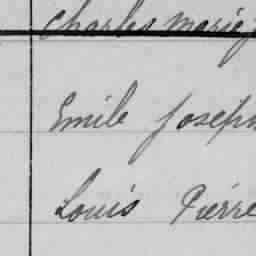 Charles Marie
Emile Joseph
Louis Pierre